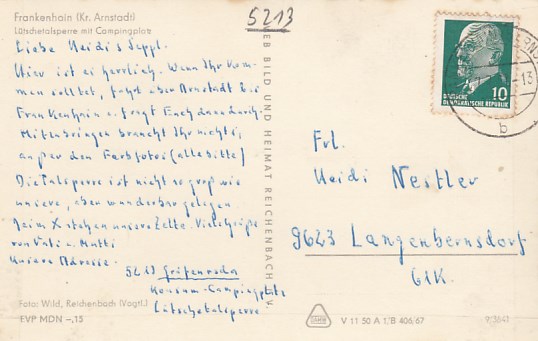 Frankenhain (Kr. Arnstadt)
Lütschetalsperre mit Campingplatz
5213
Liebe Heidi & Seppl.
Hier ist es herrlich. Wenn Ihr kom-
men solltet, fahrt über Arnstadt bis
Frankenhain u. fragt Euch dann durch.
Mitzubringen braucht Ihr nichts,
außer den Farbfotos (alle bitte)
Die Talsperre ist nicht so groß wie
unsere, aber wunderbar gelegen.
Beim X stehen unsere Zelte. Viele Grüße
von Vati u. Mutti
Unsere Adresse.
5213 Gräfenroda
Konsum-Campingplatz
Lütschetalsperre
Foto: Wild, Reichenbach (Vogtl.)
EVP MDN –,15
BILD UND HEIMAT REICHENBACH
DEUTSCHE
DEMOKRATISCHE REPUBLIK
10
13
b
Frl.
Heidi Nestler
9623 Langenbernsdorf
V 11 50 A 1/B 406/67
9/3641